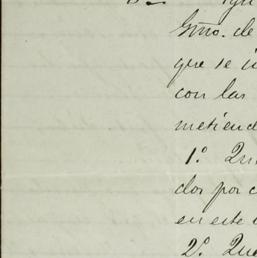 Gmo. de
que se i
con las
metiend
1.º Qu
dos por c
en este
2.º Que